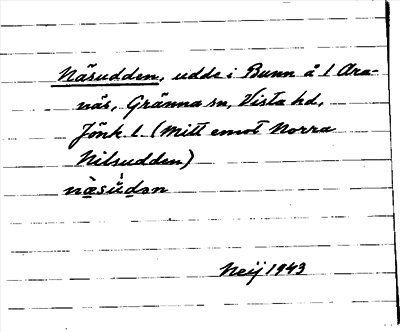 Näsudden, udde i Bunn å 1 Ara-
näs, Gränna sn, Vista hd,
Jönk l. (Mitt emot Norra
Nilsudden)
Neij 1943